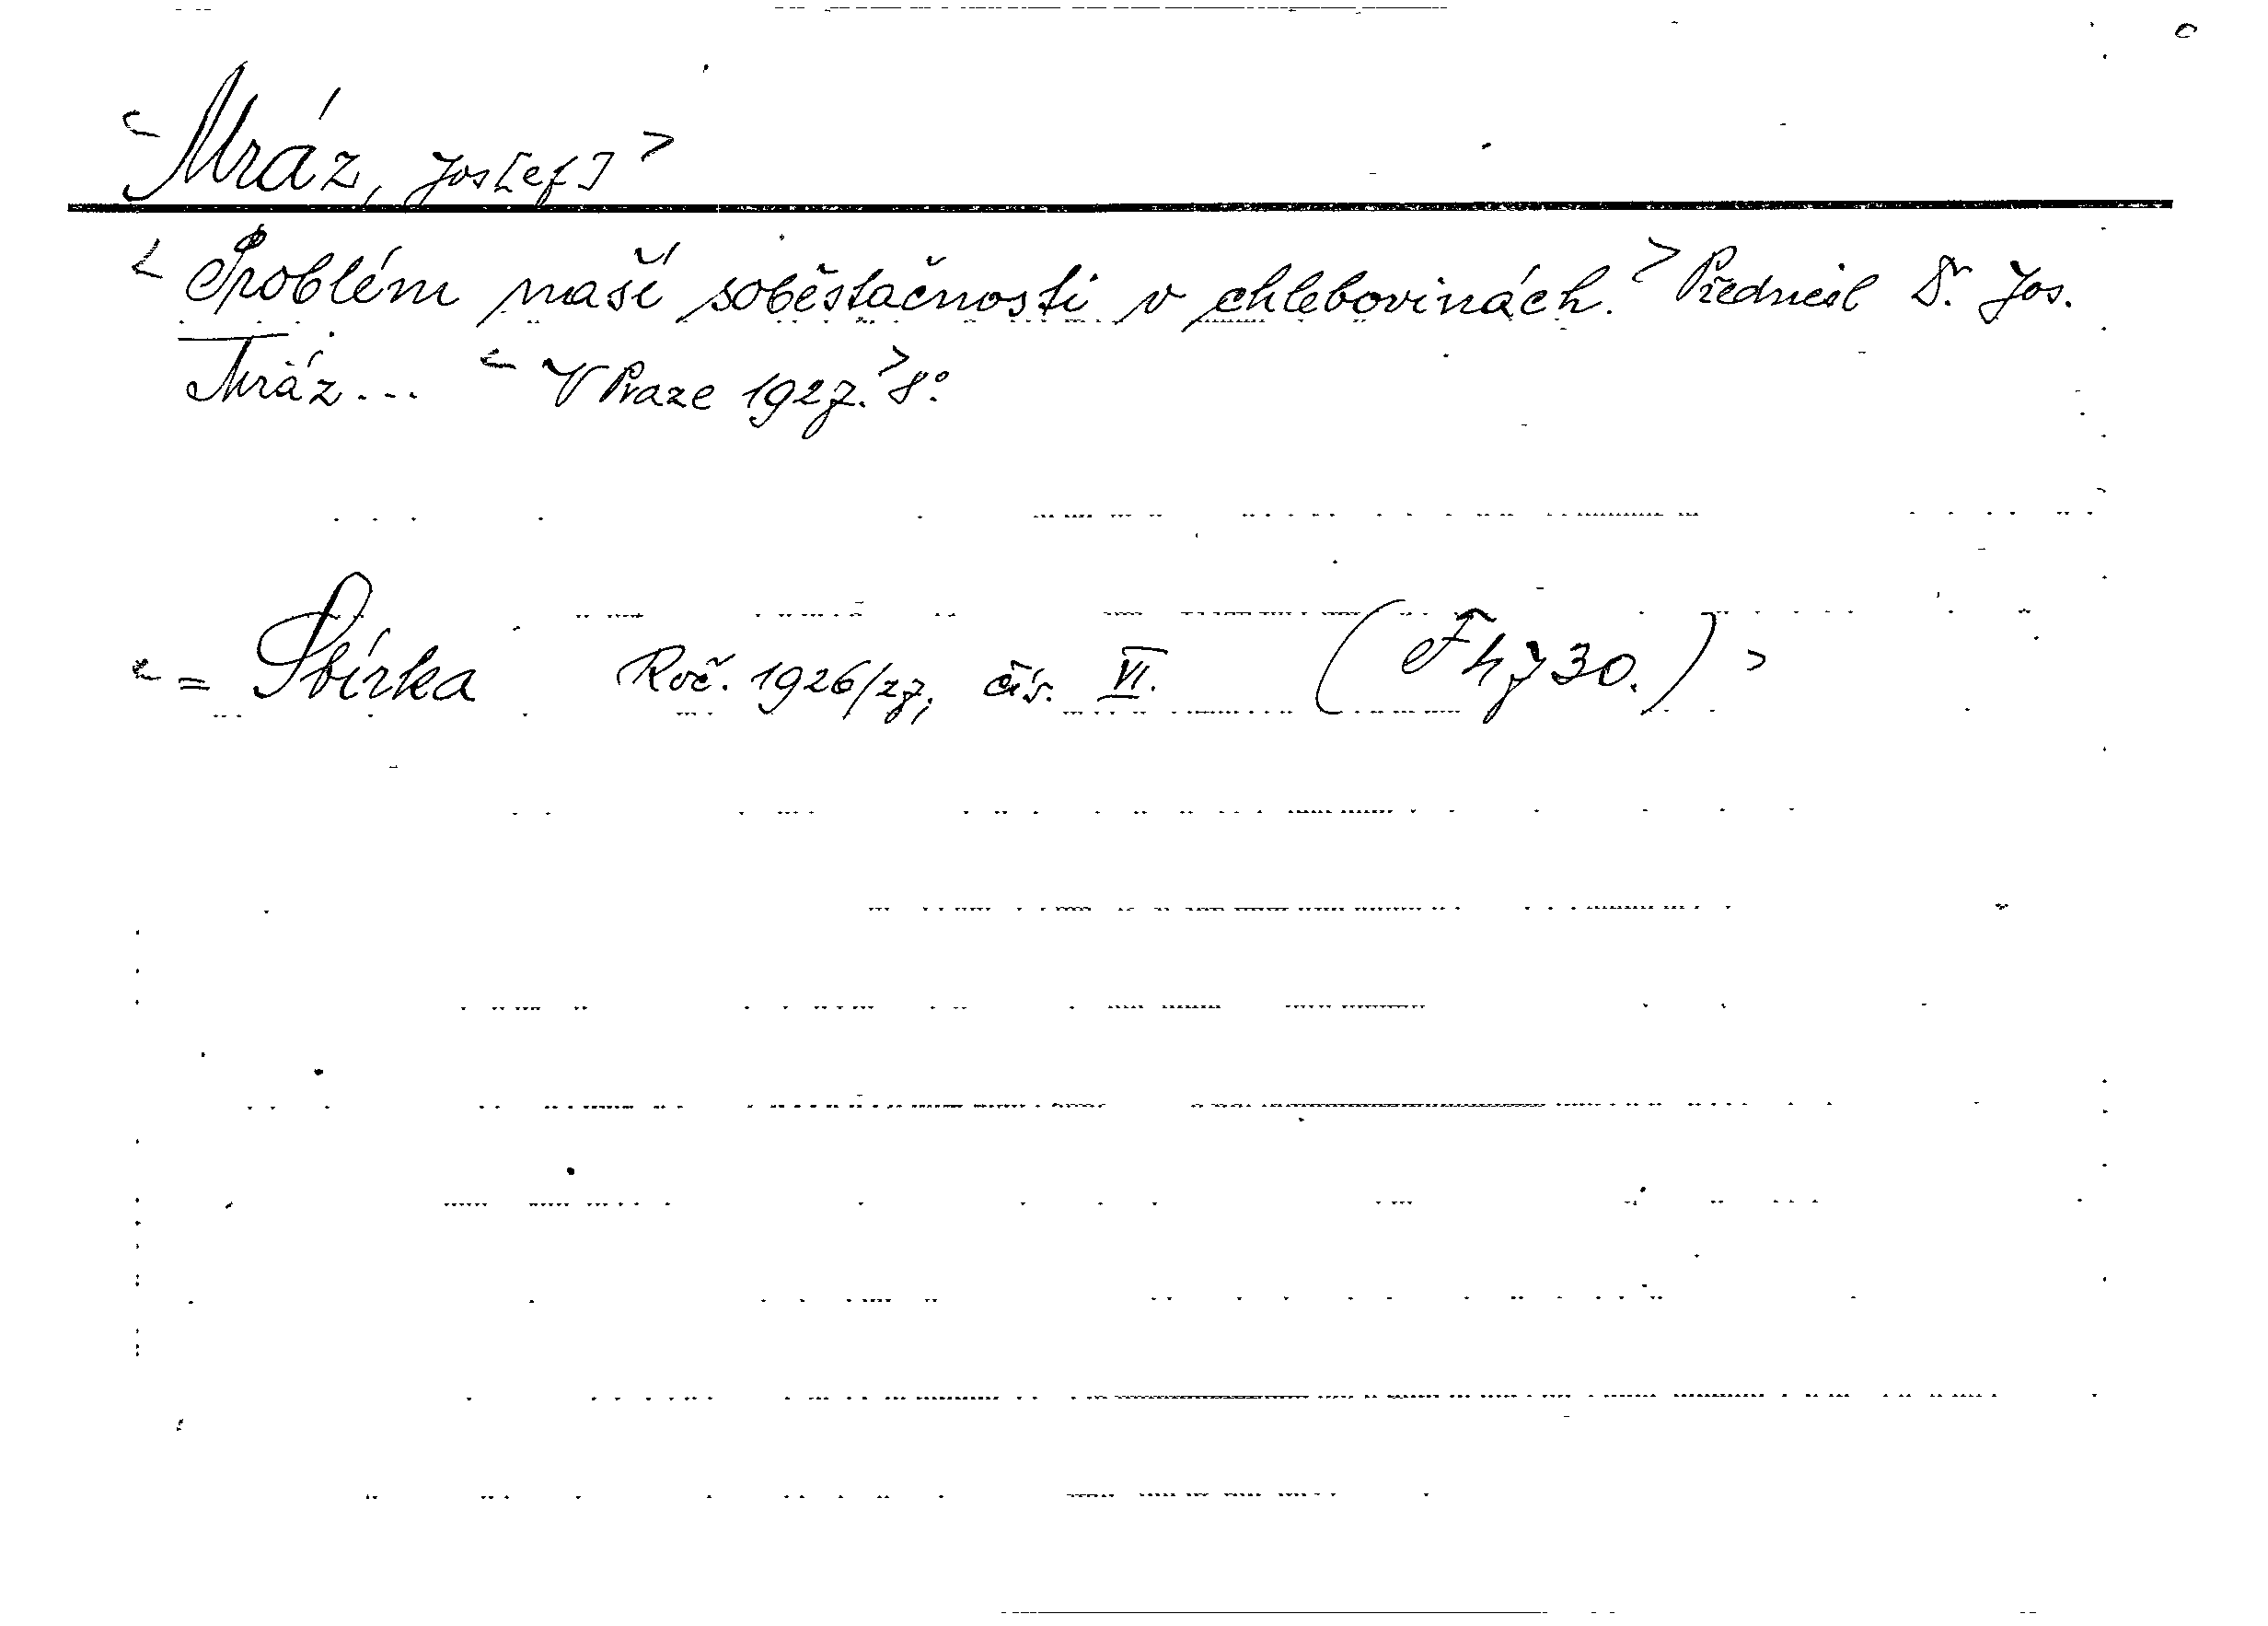 <Mráz, Jos[ef]>
<Problém naší soběstačnosti v chlebovinách.> Přednesl Dr. Jos.
Mráz... <V Praze 1927.> 8°.
<= Sbírka Roč. 1926/27, čís. VI. (F 4730.)>